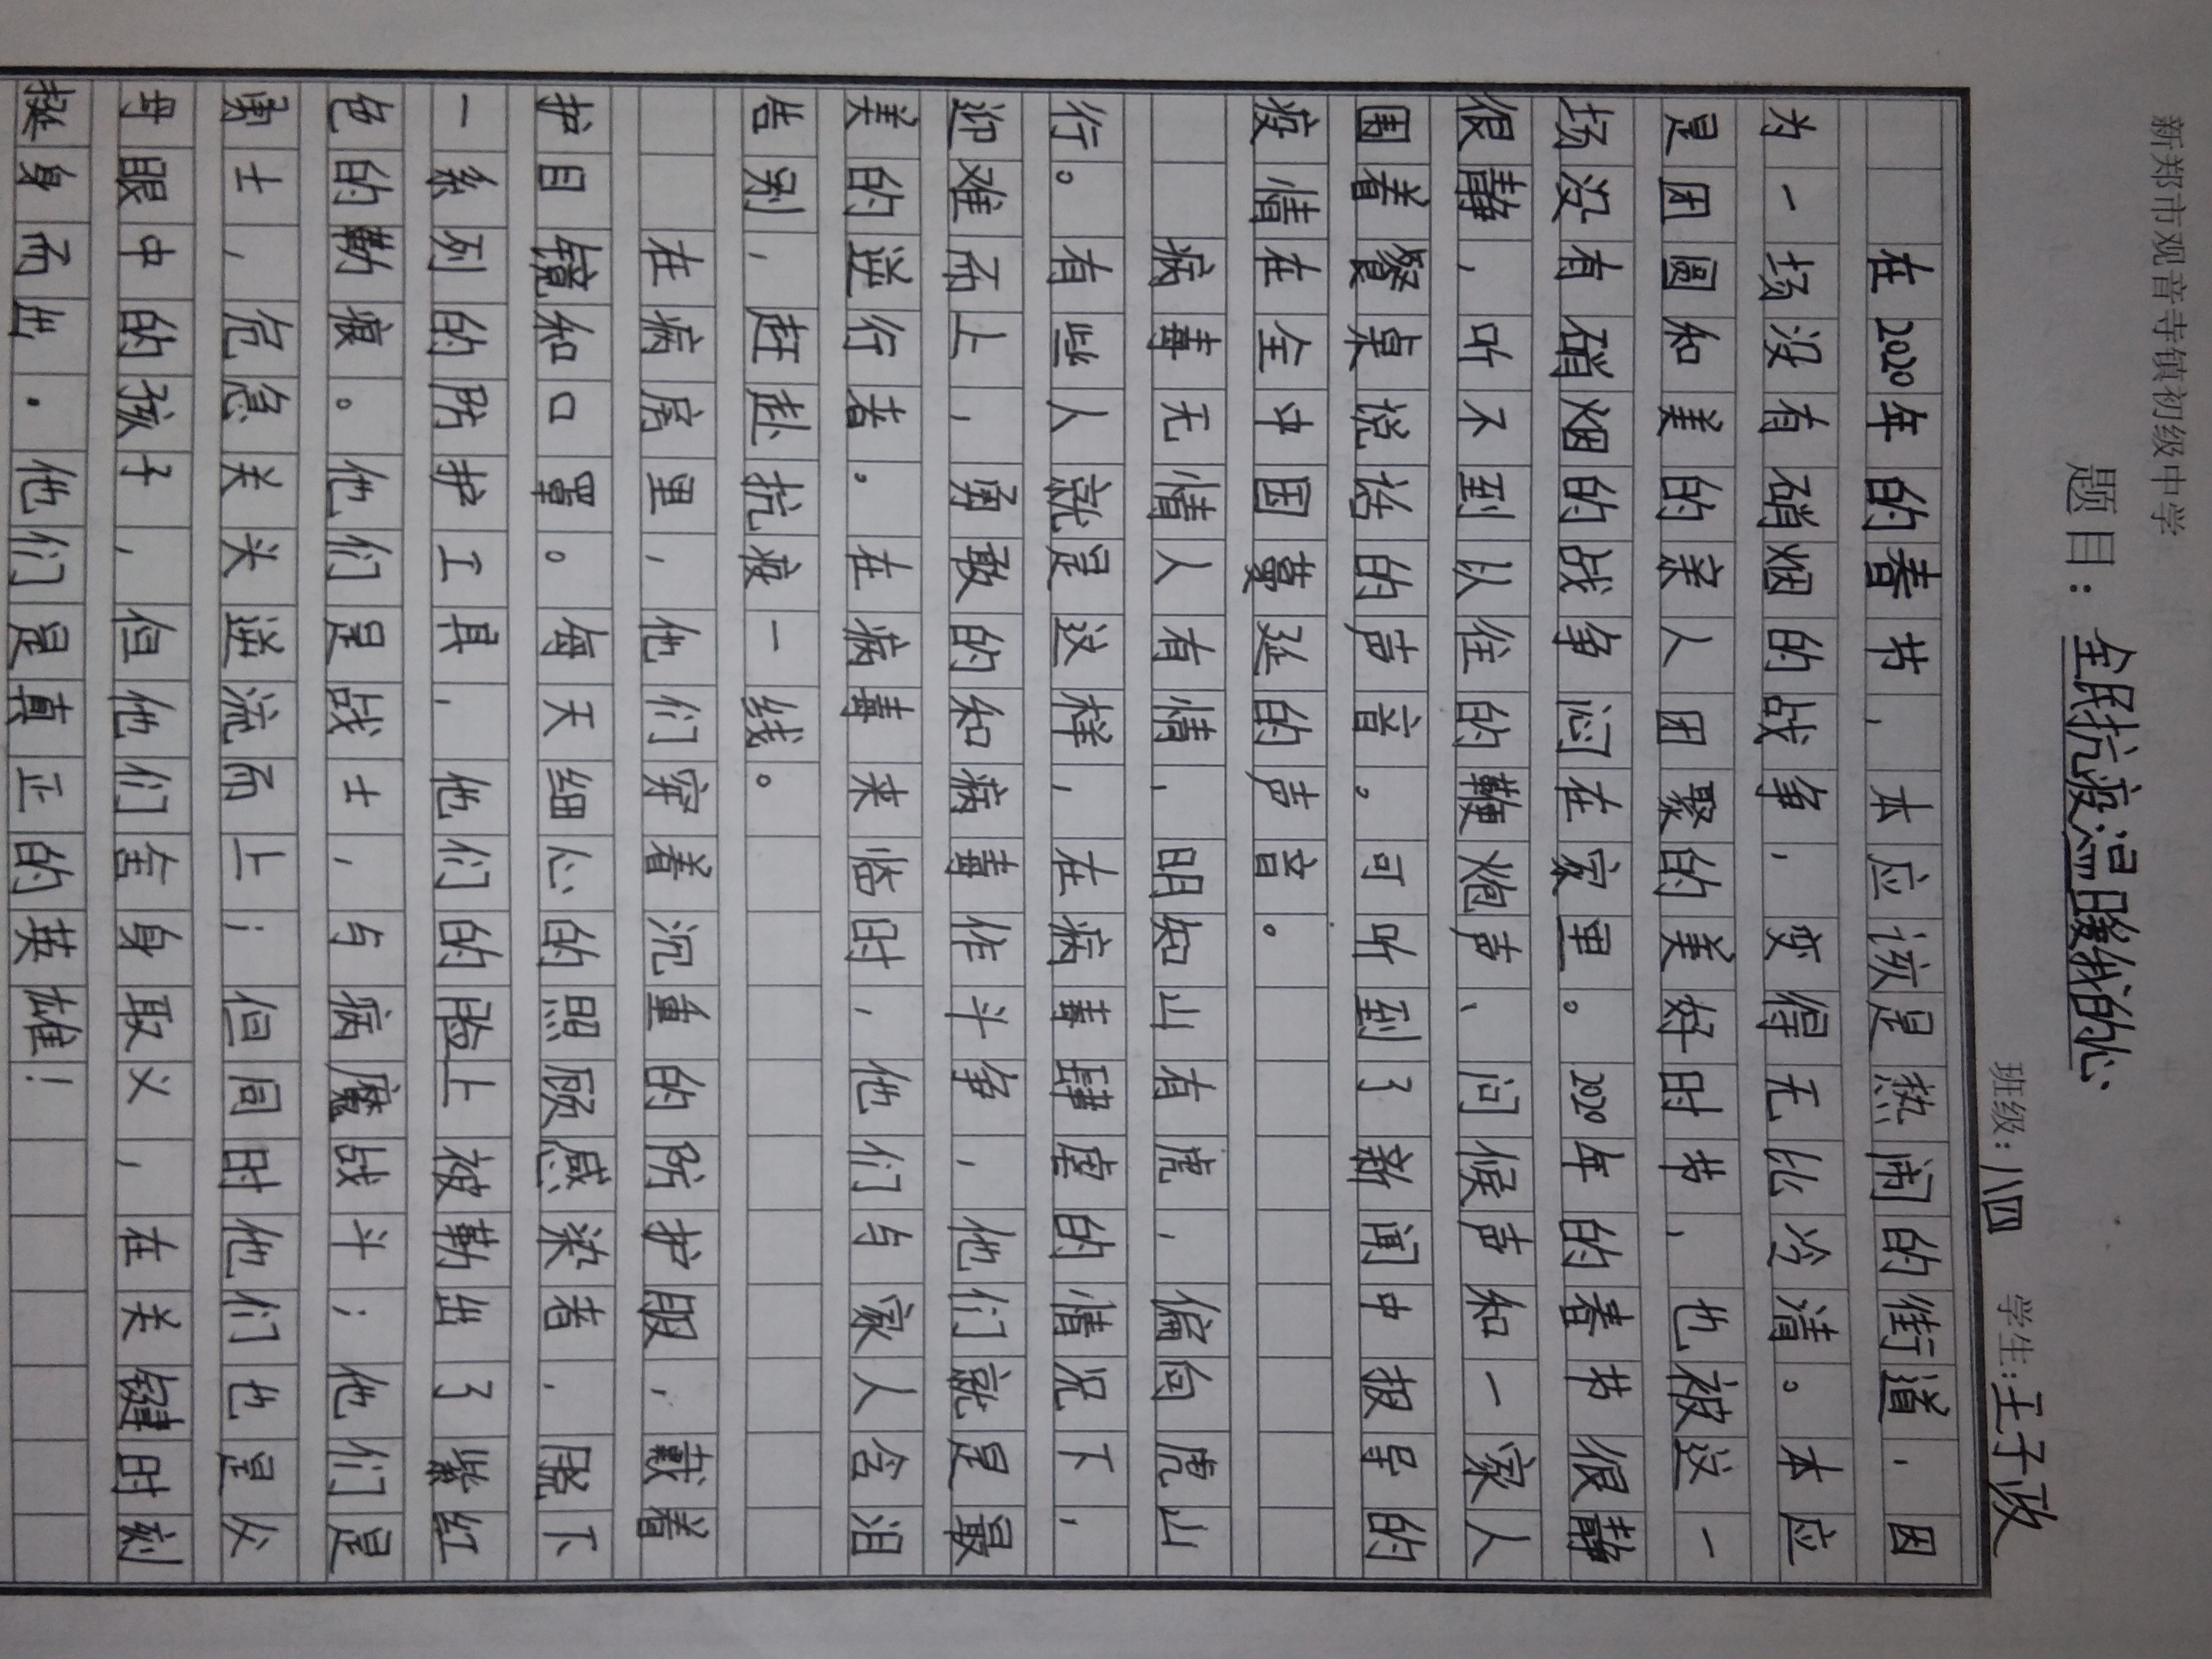 新郑市观音寺镇初级中学
题目：全民抗疫温暖我的心
班级：八四 学生：王子政
在2020年的春节，本应该是热闹的街道，因
为一场没有硝烟的战争，变得无比冷清。本应
是团圆和美的亲人团聚的美好时节，也被这一
场没有硝烟的战争闷在家里。2020年的春节很静
很静，听不到以往的鞭炮声、问候声和一家人
围着餐桌说话的声音。可听到了新闻中报导的
疫情在全中国蔓延的声音。
病毒无情人有情，明知山有虎，偏向虎山
行。有些人就是这样，在病毒肆虐的情况下，
迎难而上，勇敢的和病毒作斗争，他们就是最
美的逆行者。在病毒来临时，他们与家人含泪
告别，赶赴抗疫一线。
在病房里，他们穿着沉重的防护服，戴着
护目镜和口罩。每天细心的照顾感染者，脱下
一系列的防护工具，他们的脸上被勒出了紫红
色的勒痕。他们是战士，与病魔战斗；他们是
勇士，危急关头逆流而上；但同时他们也是父
母眼中的孩子，但他们舍身取义，在关键时刻
挺身而出。他们是真正的英雄！